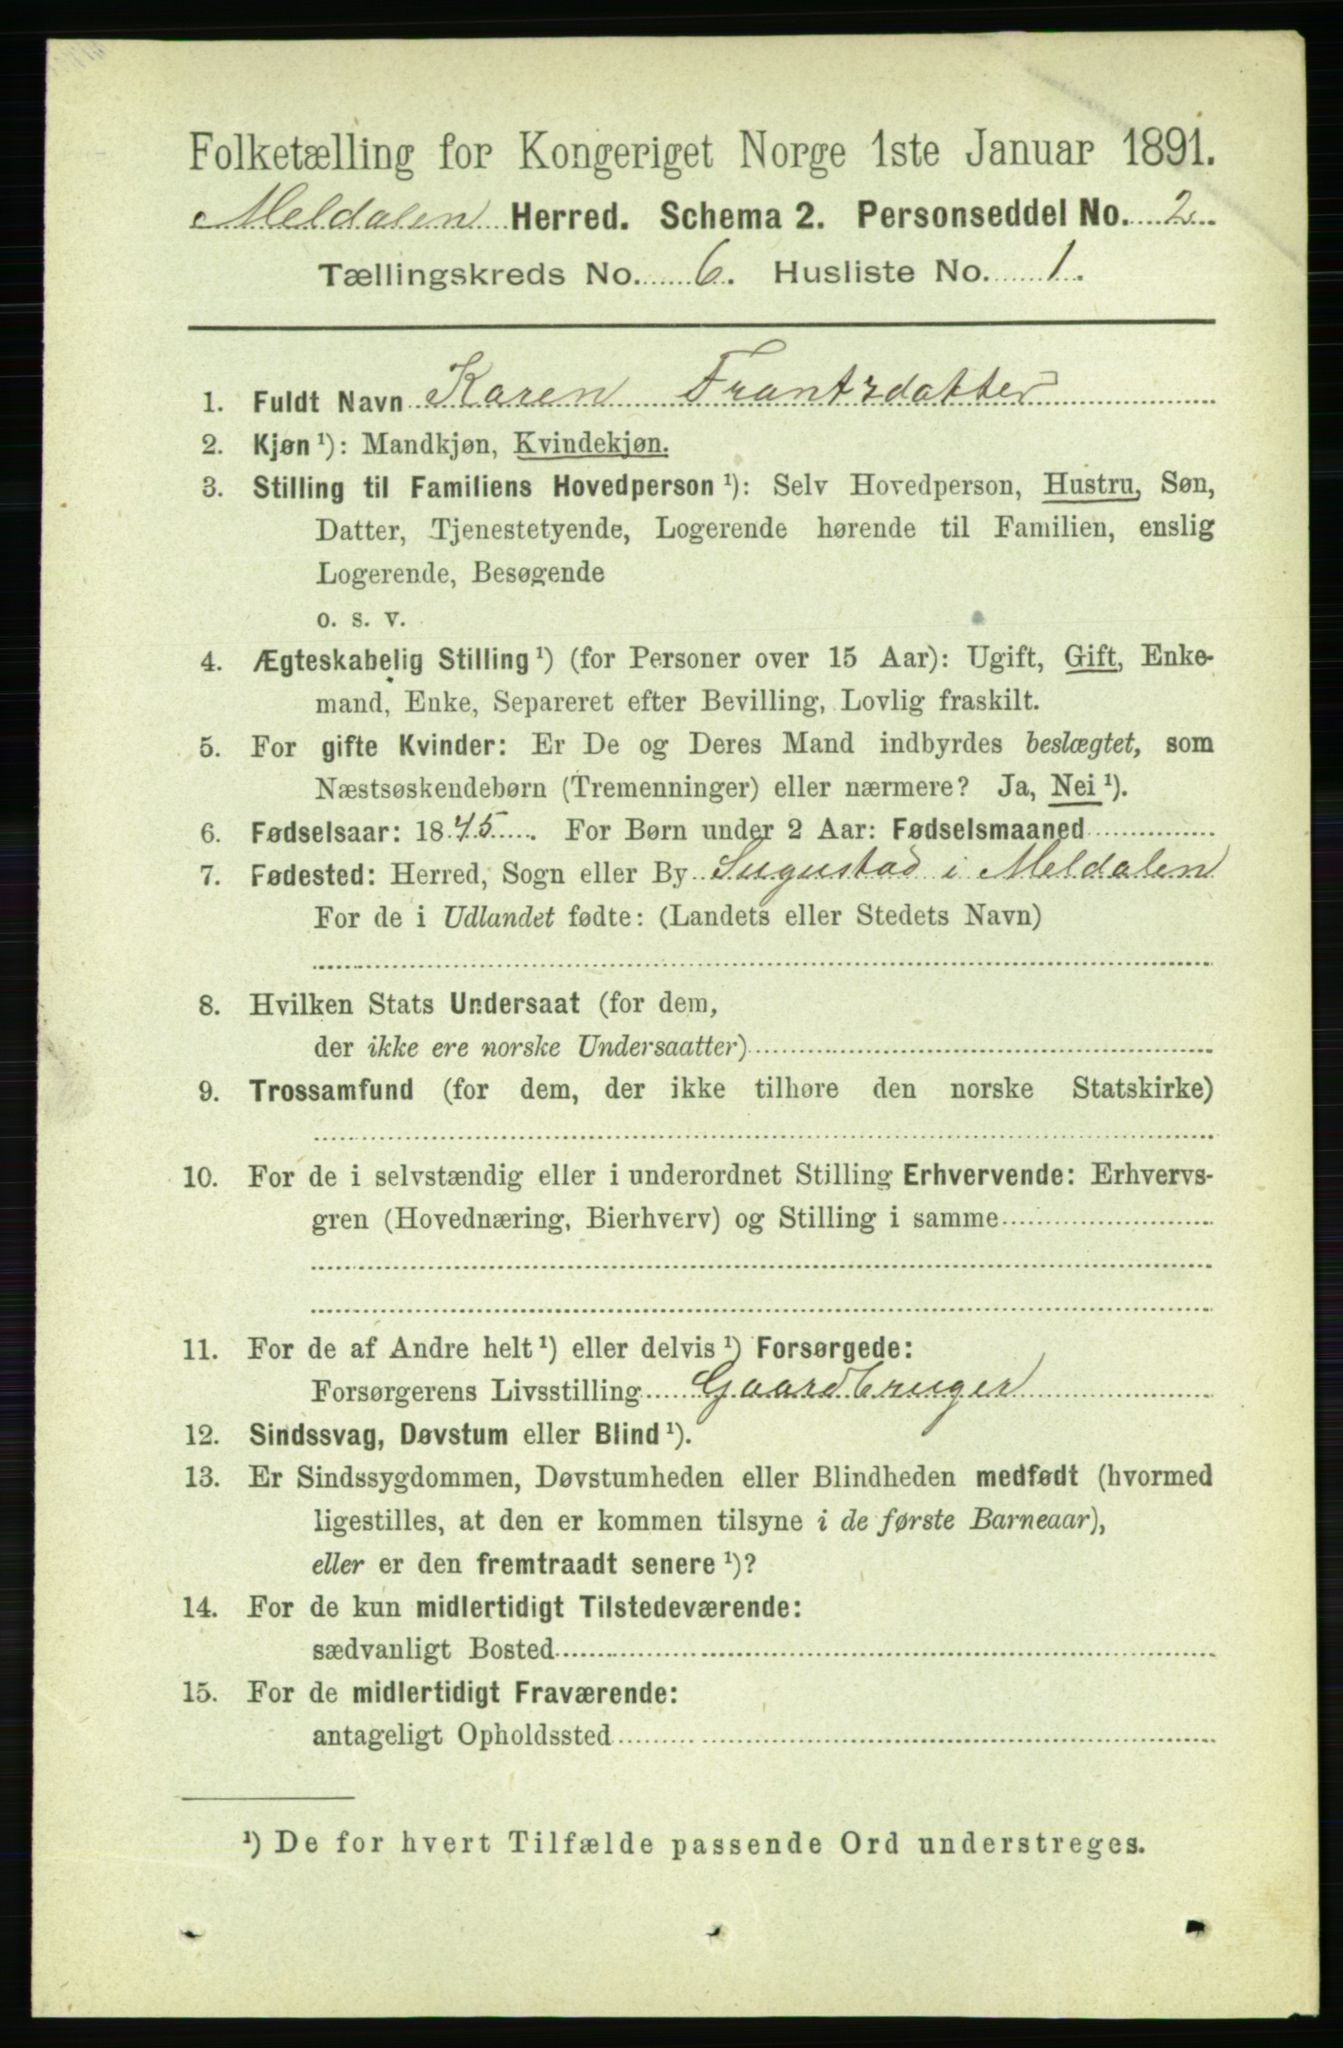 Folketælling for Kongeriget Norge 1ste Januar 1891.
Meldalen Herred. Schema 2. Personseddel No. 2.
Tællingskreds No. 6. Husliste No. 1.
1. Fuldt Navn Karen Frantsdatter
2. Kjøn ¹): Mandkjøn, Kvindekjøn.
3. Stilling til Familiens Hovedperson ¹): Selv Hovedperson, Hustru, Søn,
Datter, Tjenestetyende, Logerende hørende til Familien, enslig
Logerende, Besøgende
o. s. v.
4. Ægteskabelig Stilling ¹) (for Personer over 15 Aar): Ugift, Gift, Enke-
mand, Enke, Separeret efter Bevilling, Lovlig fraskilt.
5. For gifte Kvinder: Er De og Deres Mand indbyrdes beslægtet, som
Næstsøskendebørn (Tremenninger) eller nærmere? Ja, Nei ¹).
6. Fødselsaar: 1845. For Børn under 2 Aar: Fødselsmaaned
7. Fødested: Herred, Sogn eller By i Meldalen
For de i Udlandet fødte: (Landets eller Stedets Navn)
8. Hvilken Stats Undersaat (for dem,
der ikke ere norske Undersaatter)
9. Trossamfund (for dem, der ikke tilhøre den norske Statskirke)
10. For de i selvstændig eller i underordnet Stilling Erhvervende: Erhvervs-
gren (Hovednæring, Bierhverv) og Stilling i samme
11. For de af Andre helt ¹) eller delvis ¹) Forsørgede:
Forsørgerens Livsstilling Gaardbruger
12. Sindssvag, Døvstum eller Blind ¹).
13. Er Sindssygdommen, Døvstumheden eller Blindheden medfødt (hvormed
ligestilles, at den er kommen tilsyne i de første Barneaar),
eller er den fremtraadt senere ¹)?
14. For de kun midlertidigt Tilstedeværende:
sædvanligt Bosted
15. For de midlertidigt Fraværende:
antageligt Opholdssted
¹) De for hvert Tilfælde passende Ord understreges.